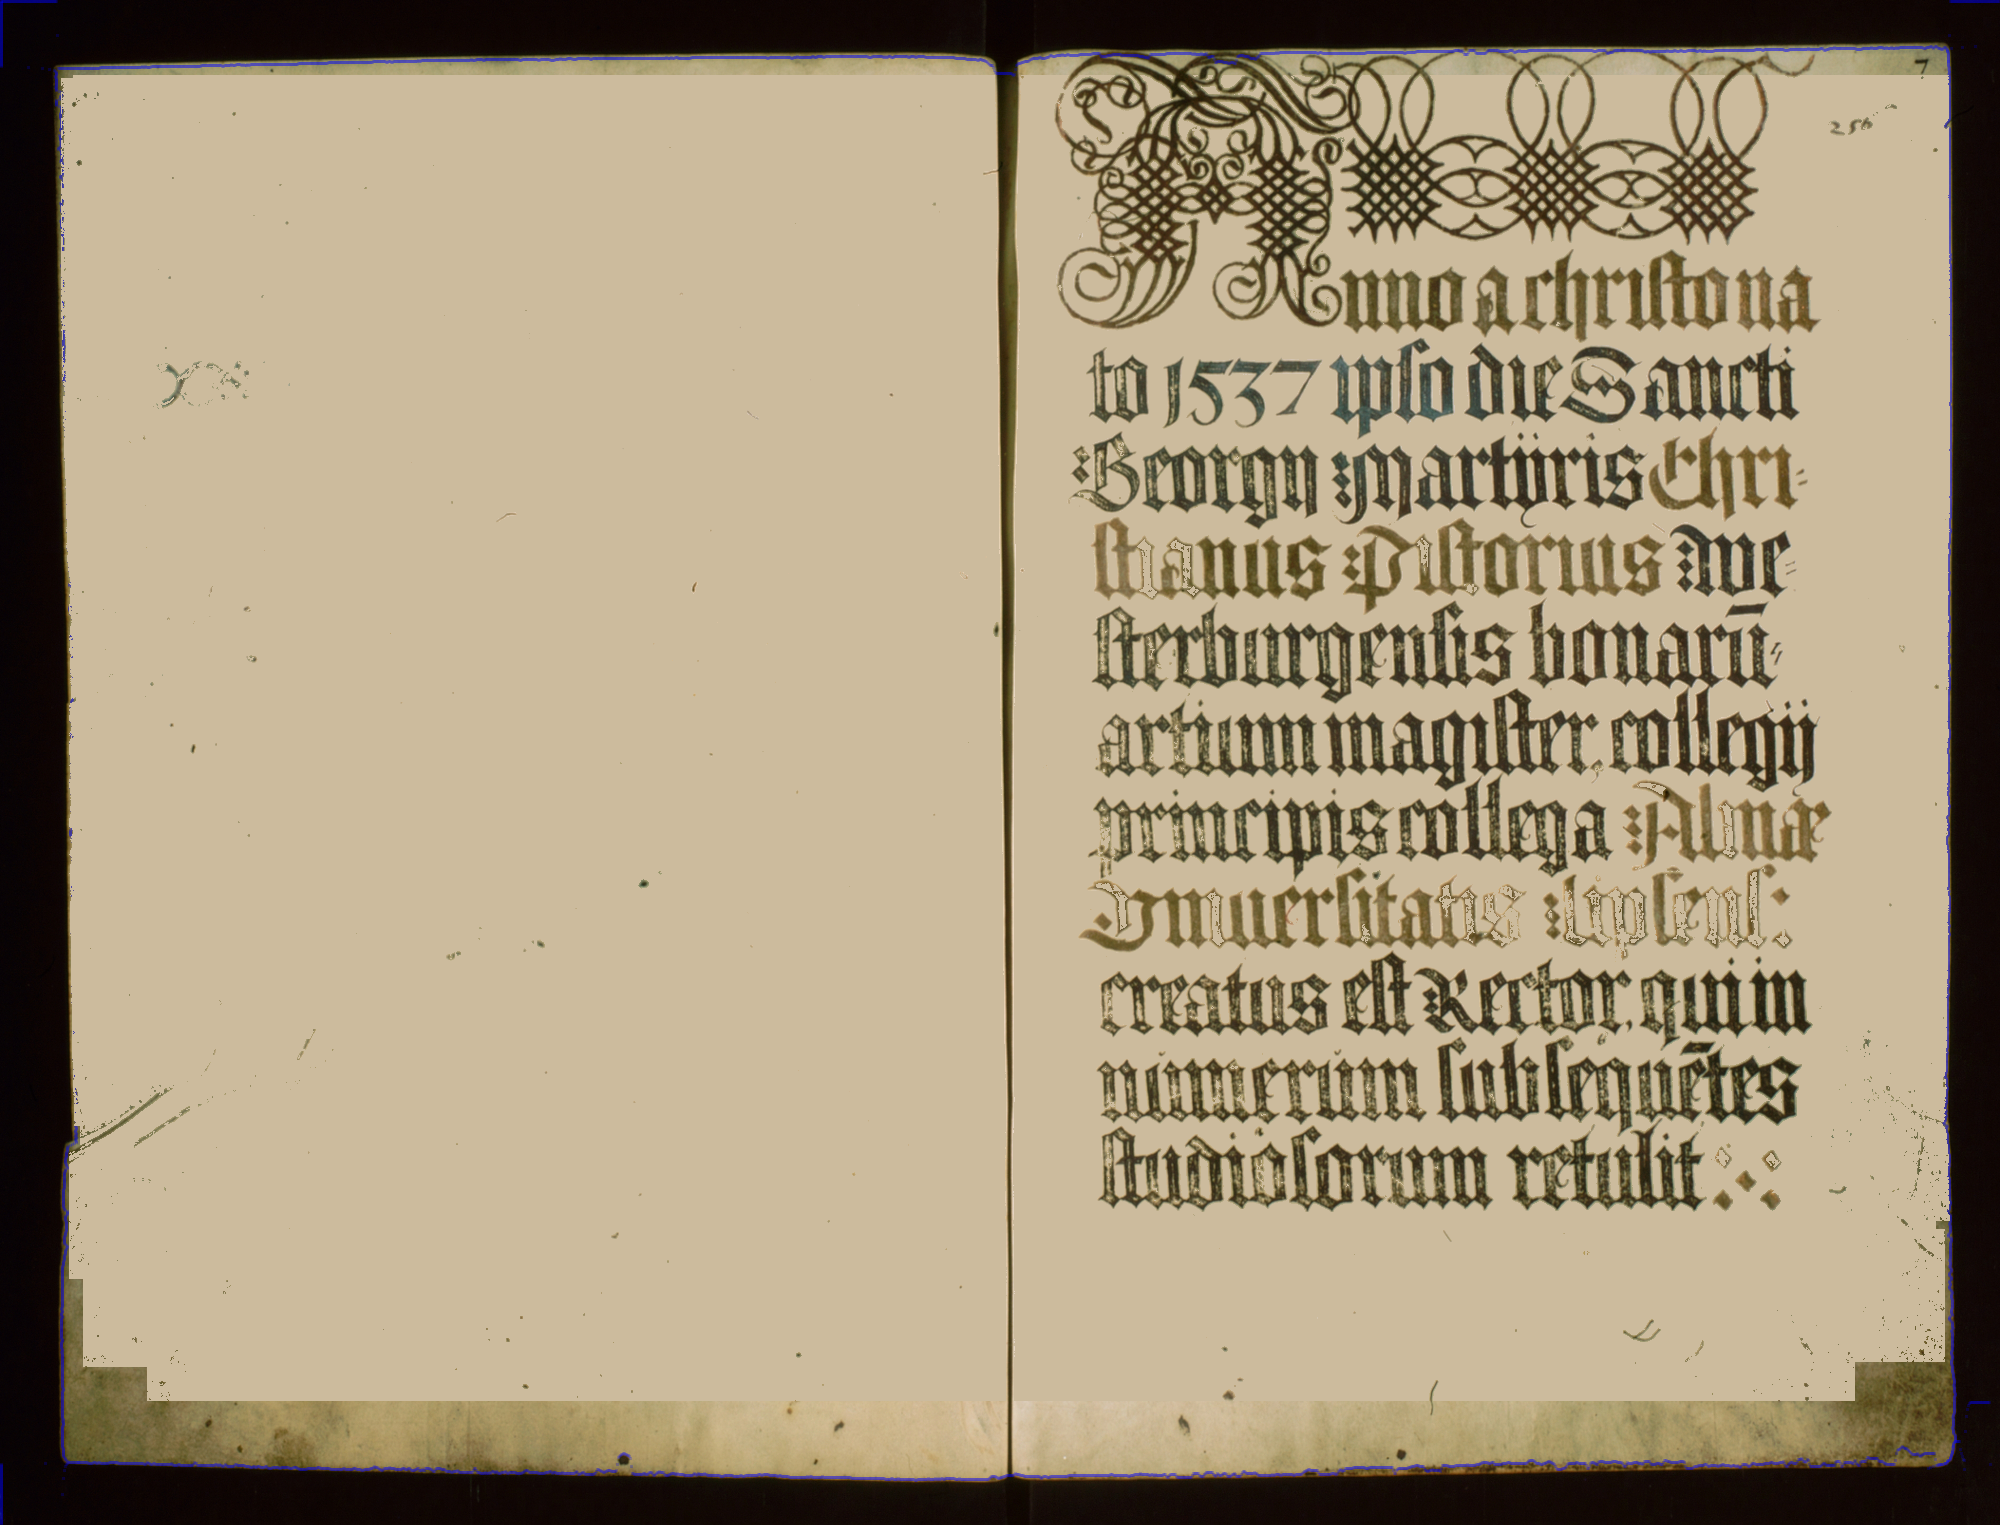 7
256
Anno a christo na
to 1537 ipso die Sancti
Georgij Martÿris Chri-
stianus Pistorius Ave-
sterburgensis bonarū-
artium magister, collegij
principis collega Almæ
Vniuersitatis Lipsens:
creatus est Rector, qui in
numerum subsequētes
studiosorum retulit